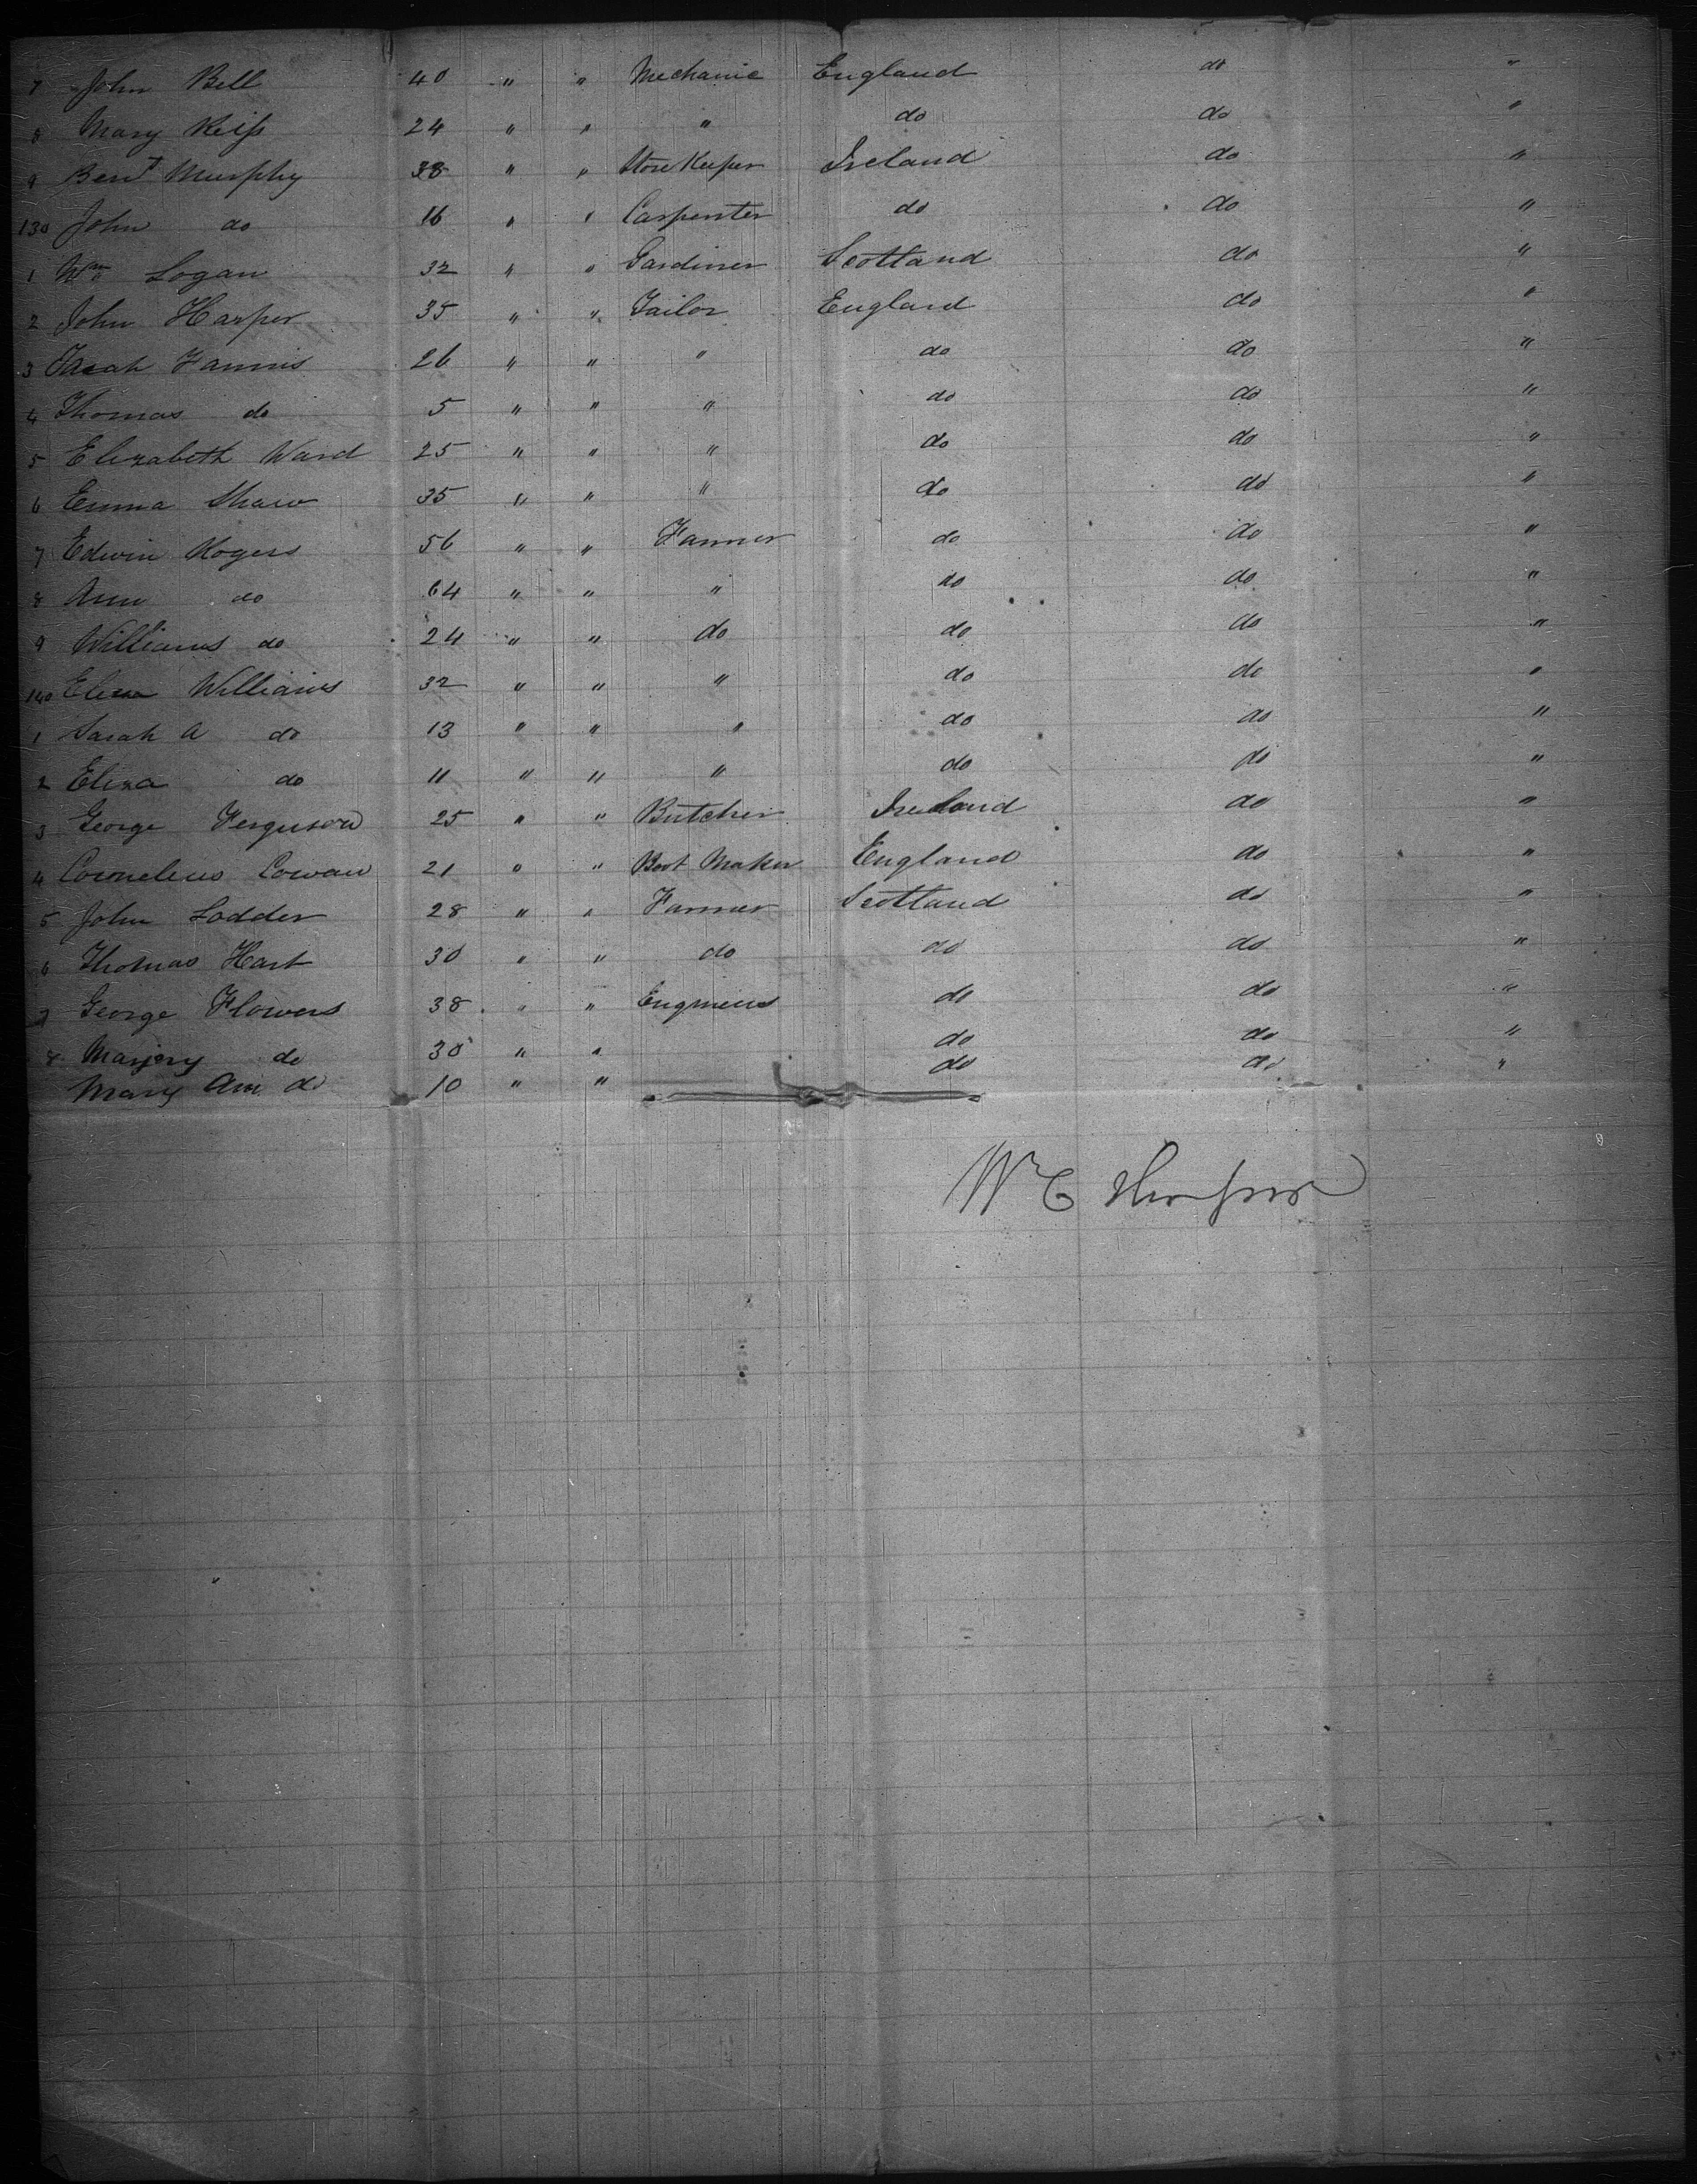 7 John Bell 40 " " Mechanic England do "
8 Mary Reiss 24 " " " do do "
9 Benj Murphy 38 " " Store Keeper Ireland do "
130 John do 16 " " Carpenter do do "
1 Wm Logan 32 " " Gardiner Scotland do "
2 John Harper 35 " " Tailor England do "
3 Sarah Fannis 26 " " " do do "
4 Thomas do 5 " " " do do "
5 Elizabeth Ward 25 " " " do do "
6 Emma Shaw 35 " " " do do "
7 Edwin Rogers 56 " " Farmer do do "
8 Ann do 64 " " " do do "
9 Williams do 24 " " do do do "
140 Eliza Williams 32 " " " do do "
1 Sarah A do 13 " " " do do "
2 Eliza do 11 " " " do do "
3 George Ferguson 25 " " Butcher Ireland do "
4 Cornelius Cowan 21 " " Boot Maker England do "
5 John Lodder 28 " " Farmer Scotland do "
6 Thomas Hart 30 " " do do do "
7 George Flowers 38 " " Engineer do do "
8 Marjery do 30 " " do do "
Mary Ann do 10 " " do do "
Wm C Thompson